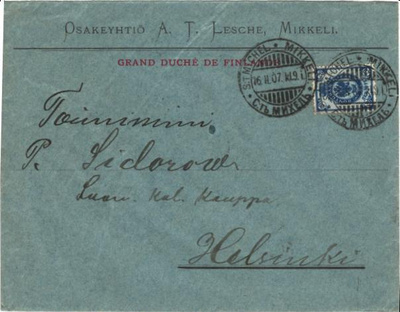 OSAKEYHTIÖ A. T. LESCHE, MIKKELI.
GRAND DUCHÉ DE FINLANDE
S:T MICHEL * MIKKELI
16.II.07.
СТЪ МИХЕЛЬ
MIKKELI
СТЪ МИХЕЛЬ
Toiminimi
P. Sidorow
Kal. Kauppa
Helsinki